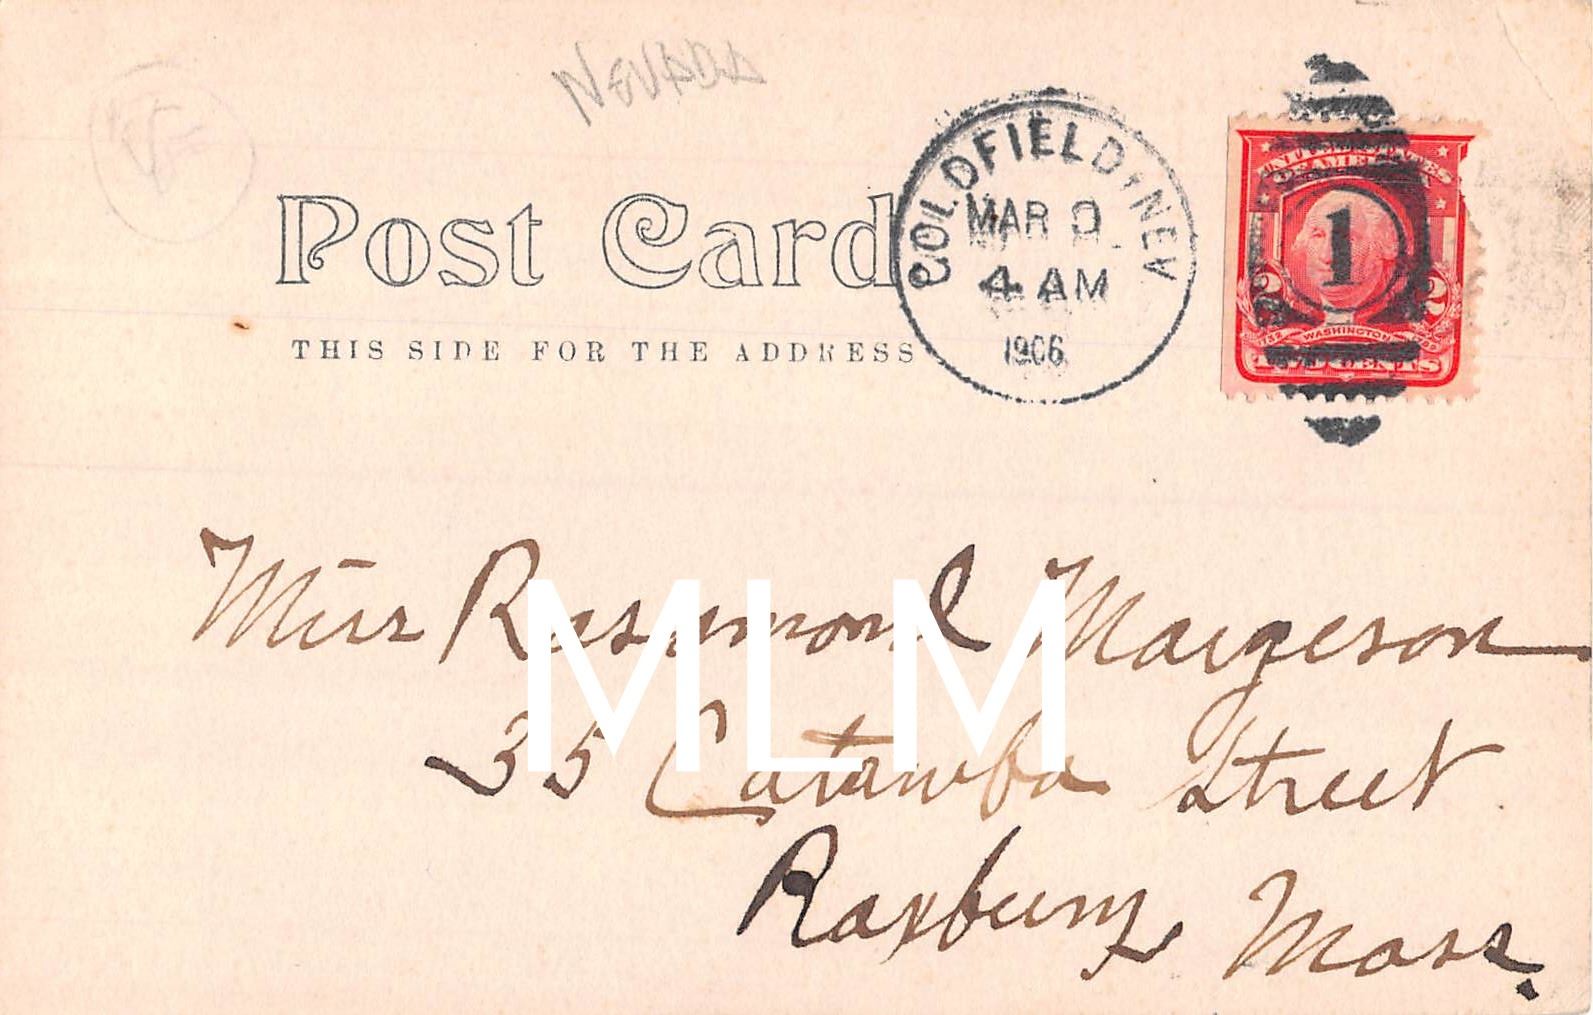 NEVADA
VF
Post Card
THIS SIDE FOR THE ADDRESS
GOLDFIELD, NEV
MAR 9
4 AM
1906
1
UNITED STATES
OF AMERICA
2 2
1732 WASHINGTON 1799
TWO CENTS
Miss Rosamond Margeson
35 Catawba Street
Roxbury
Mass.
MLM